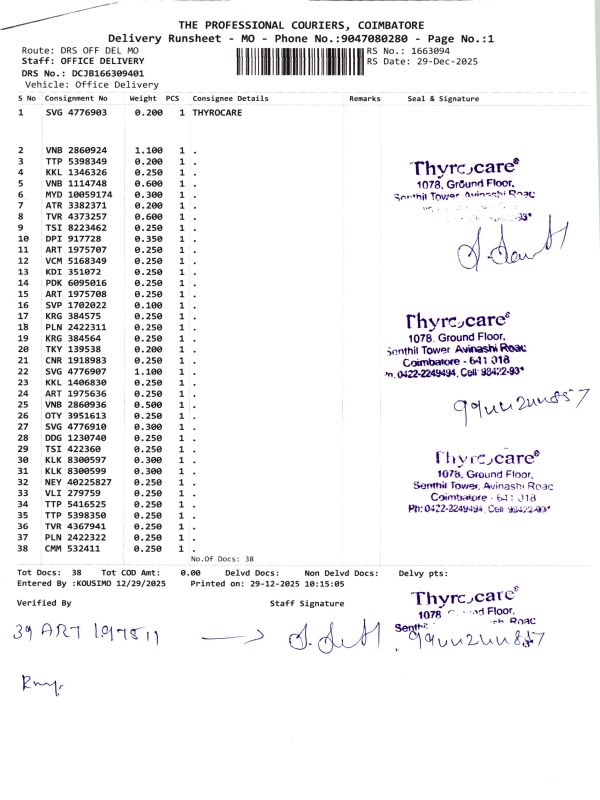 THE PROFESSIONAL COURIERS, COIMBATORE
Delivery Runsheet - MO - Phone No.:9047080280 - Page No.:1
Route: DRS OFF DEL MO RS No.: 1663094
Staff: OFFICE DELIVERY RS Date: 29-Dec-2025
DRS No.: DCJB166309401
Vehicle: Office Delivery
S No Consignment No Weight PCS Consignee Details Remarks Seal & Signature
1 SVG 4776903 0.200 1 THYROCARE
2 VNB 2860924 1.100 1 .
3 TTP 5398349 0.200 1 .
4 KKL 1346326 0.250 1 .
5 VNB 1114748 0.600 1 .
6 MYD 10059174 0.300 1 .
7 ATR 3382371 0.200 1 .
8 TVR 4373257 0.600 1 .
9 TSI 8223462 0.250 1 .
10 DPI 917728 0.350 1 .
11 ART 1975707 0.250 1 .
12 VCM 5168349 0.250 1 .
13 KDI 351072 0.250 1 .
14 PDK 6095016 0.250 1 .
15 ART 1975708 0.250 1 .
16 SVP 1702022 0.100 1 .
17 KRG 384575 0.250 1 .
18 PLN 2422311 0.250 1 .
19 KRG 384564 0.250 1 .
20 TKY 139538 0.200 1 .
21 CNR 1918983 0.250 1 .
22 SVG 4776907 1.100 1 .
23 KKL 1406830 0.250 1 .
24 ART 1975636 0.250 1 .
25 VNB 2860936 0.500 1 .
26 OTY 3951613 0.250 1 .
27 SVG 4776910 0.300 1 .
28 DDG 1230740 0.250 1 .
29 TSI 422360 0.250 1 .
30 KLK 8300597 0.300 1 .
31 KLK 8300599 0.300 1 .
32 NEY 40225827 0.250 1 .
33 VLI 279759 0.250 1 .
34 TTP 5416525 0.250 1 .
35 TTP 5398350 0.250 1 .
36 TVR 4367941 0.250 1 .
37 PLN 2422322 0.250 1 .
38 CMM 532411 0.250 1 .
Thyrocare®
1078, Ground Floor,
Senthil Tower, Avinashi Road
Thyrocare®
1078, Ground Floor,
Senthil Tower Avinashi Road
Coimbatore - 641 018
Ph. 0422-2249494, Cell: 98422-93*
Thyrocare®
1078, Ground Floor,
Senthil Tower, Avinashi Road
Coimbatore - 641 018
Ph: 0422-2249494, Cell
No.Of Docs: 38
Tot Docs: 38 Tot COD Amt: 0.00 Delvd Docs: Non Delvd Docs: Delvy pts:
Entered By :KOUSIMO 12/29/2025 Printed on: 29-12-2025 10:15:05
Verified By Staff Signature
Thyrocare®
1078 Ground Floor,
39 ART 1975711